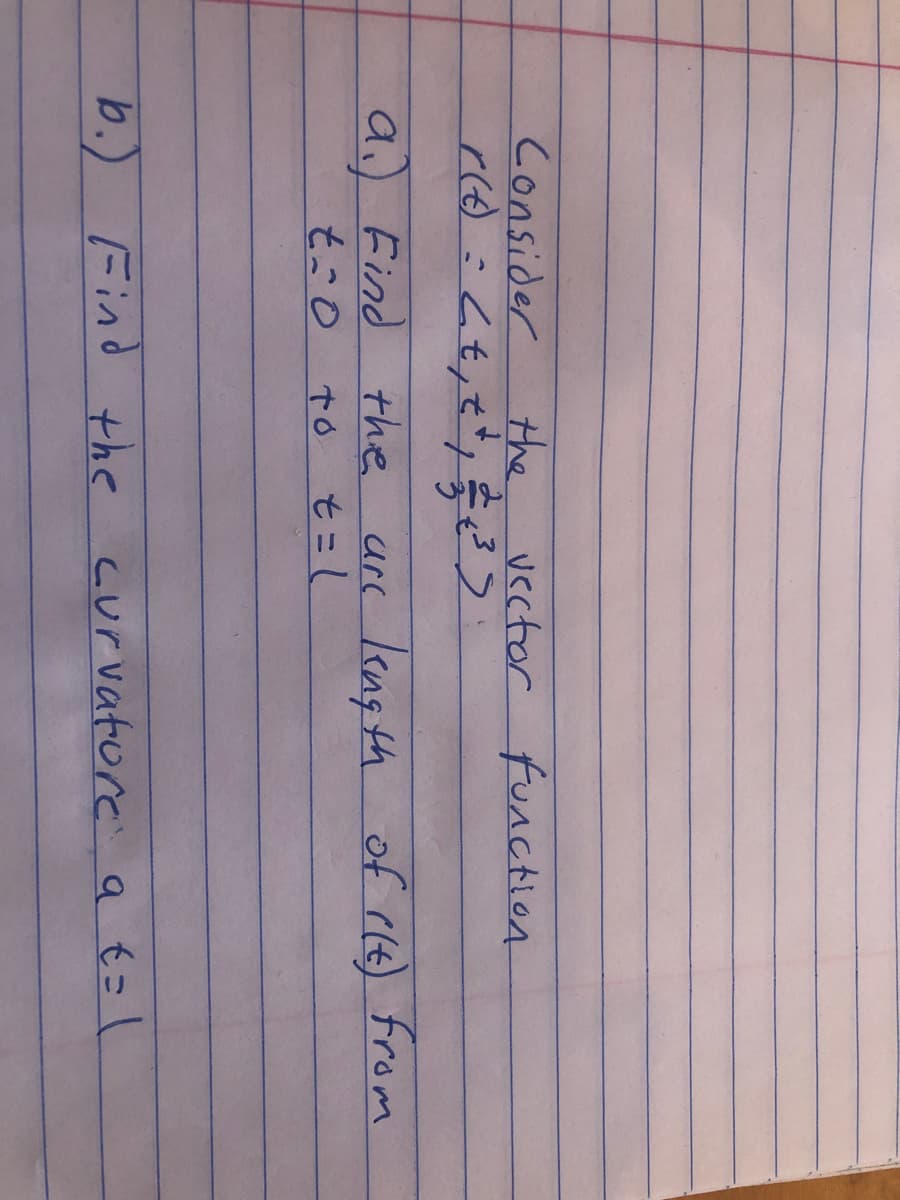 Consider the vector function
r(t) = <t, t^t, 2/3 t^3>
a.) Find the arc length of r(t) from
t=0 to t=1
b.) Find the curvature a t=1